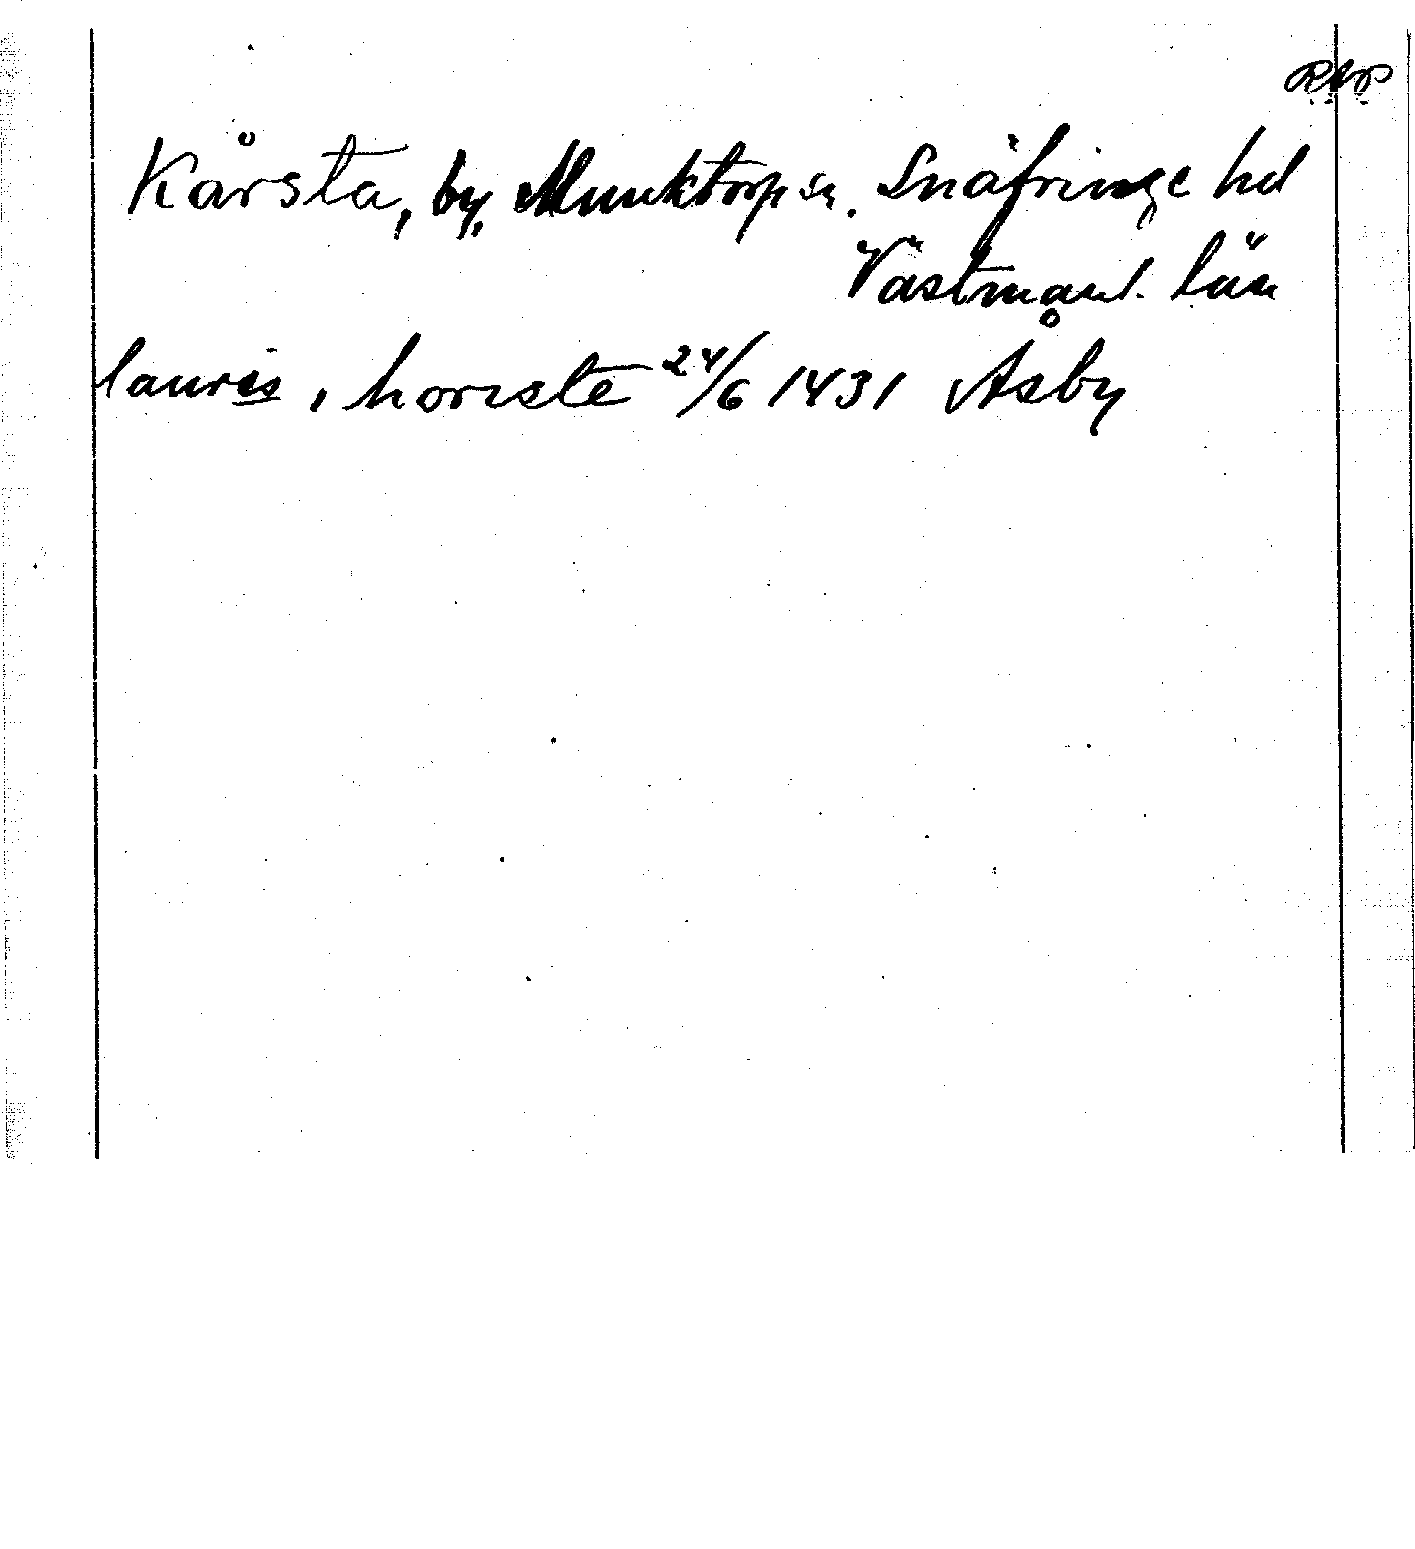 Kårsta, by, Munktorp sn. Snäfringe hd
Västmanl. län
lauris, horeste 24/6 1431 Åsby